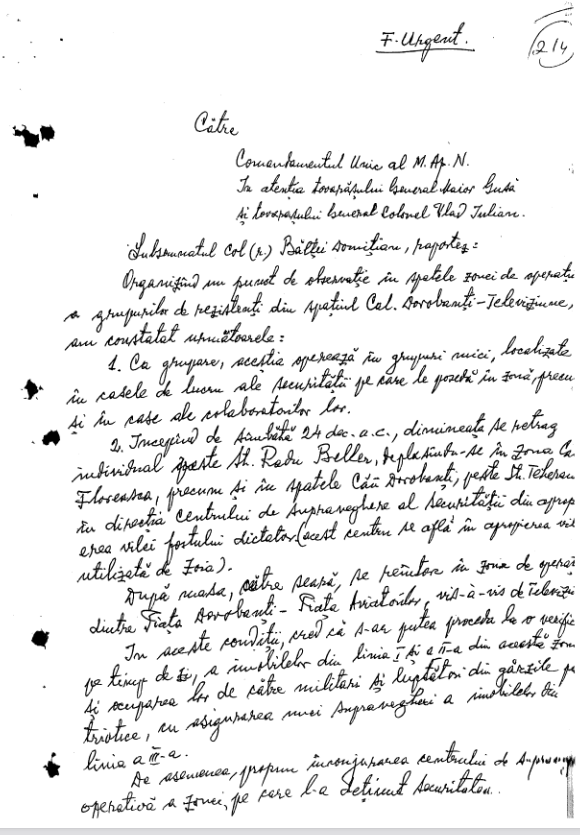 F. Urgent.
214
Către
Comandamentul Unic al M.Ap.N.
În atenția tovarășului General Maior Gușă
și tovarășului General Colonel Vlad Iulian.
Subsemnatul Col (r) Bălței Domițian, raportez:
Organizînd un punct de observație în spatele zonei de operați
a grupurilor de rezistenți din spațiul Cal. Dorobanți-Televiziune,
am constatat următoarele:
1. Ca grupare, aceștia operează în grupuri mici, localizate
în casele de lucru ale securității pe care le posedă în zonă, precu
și în case ale colaboratorilor lor.
2. Începînd de sîmbătă 24 dec. a.c., dimineața se retrag
individual peste St. Radu Beller, deplasîndu-se în zona Ca
Floreasca, precum și în spatele Căii Dorobanți, peste St. Teheran
în direcția Centrului de Supraveghere al Securității din aprop
ierea vilei fostului dictator (acest centru se află în apropierea vil
utilizată de Zoia).
După masa, către seară, se reîntorc în zona de operar
dintre Piața Dorobanți - Piața Aviatorilor, vis-à-vis de Televizi
În aceste condiții, cred că s-ar putea proceda la o verific
pe timp de zi, a imobilelor din linia I și a II-a din această zon
și ocuparea lor de către militari și luptători din gărzile pa
triotice, cu asigurarea unei supravegheri a imobilelor din
linia a III-a.
De asemenea, propun înconjurarea centrului de suprav
operativă a zonei, pe care l-a deținut securitatea.